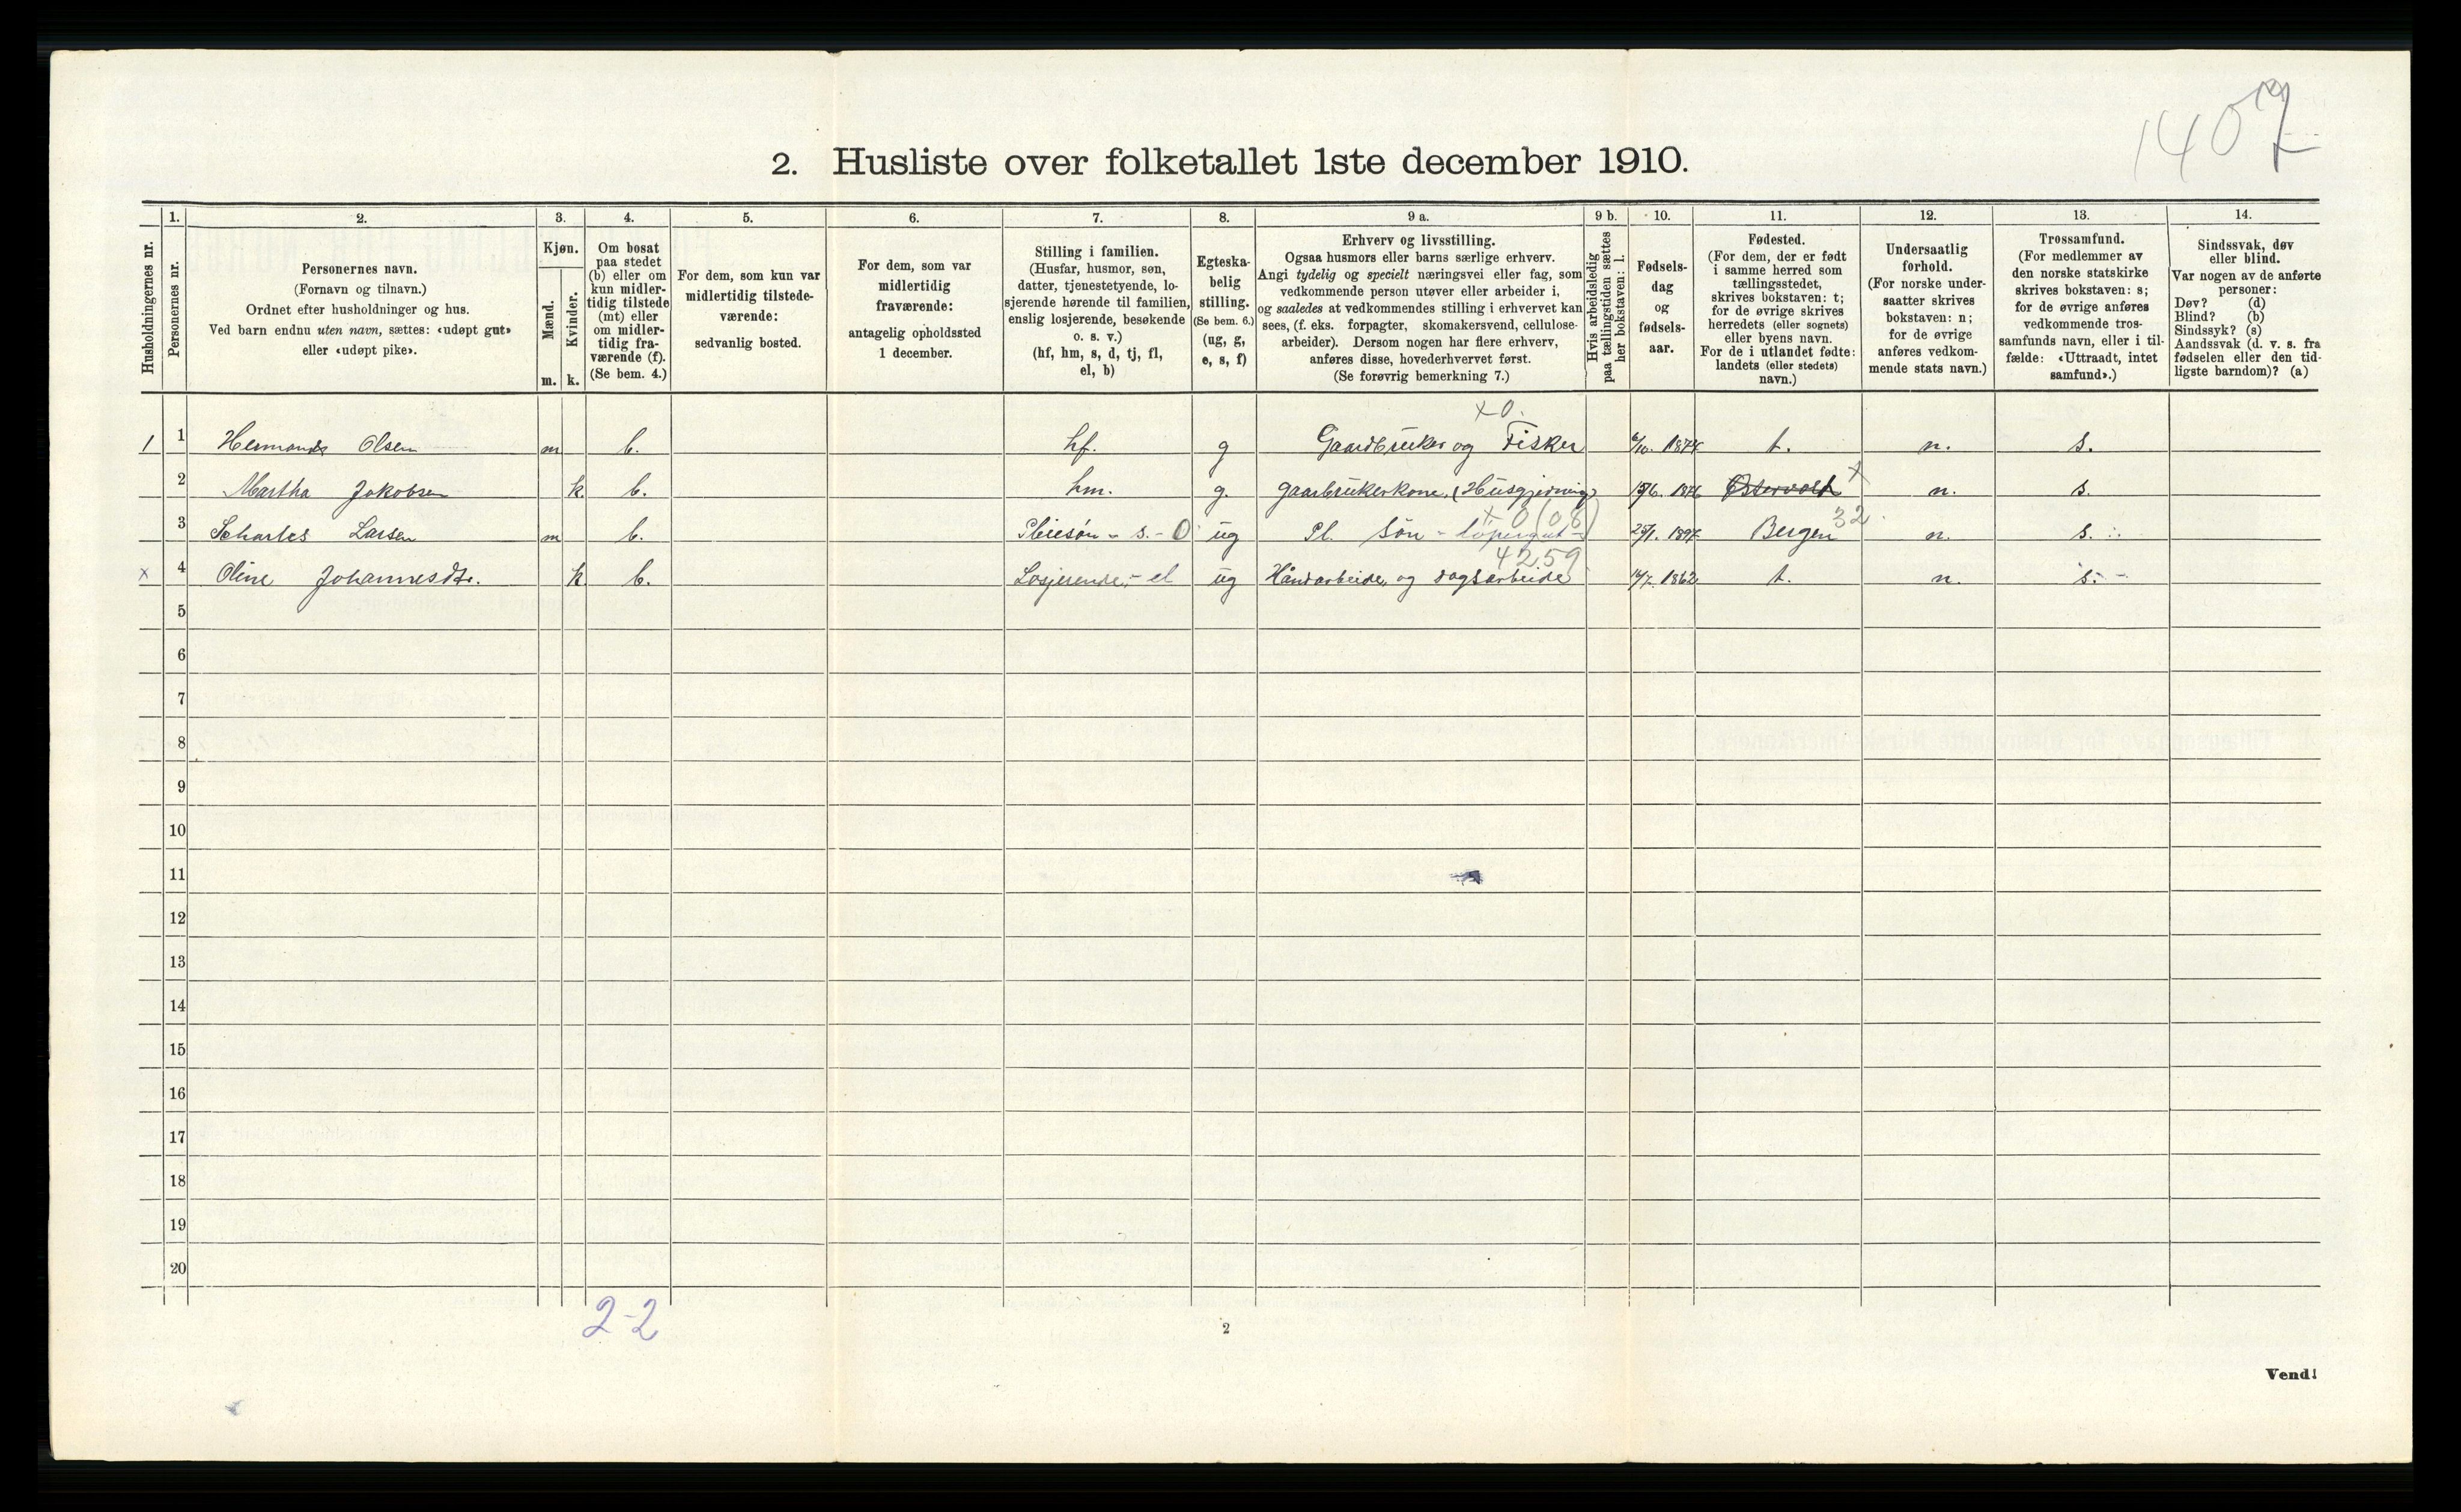 1407
2. Husliste over folketallet 1ste december 1910.
Husholdningernes nr.
1.
Personernes nr.
2.
Personernes navn.
(Fornavn og tilnavn.)
Ordnet efter husholdninger og hus.
Ved barn endnu uten navn, sættes: «udøpt gut»
eller «udøpt pike».
3.
Kjøn.
Mænd.
Kvinder.
m. k.
4.
Om bosat
paa stedet
(b) eller om
kun midler-
tidig tilstede
(mt) eller
om midler-
tidig fra-
værende (f).
(Se bem. 4.)
5.
For dem, som kun var
midlertidig tilstede-
værende:
sedvanlig bosted.
6.
For dem, som var
midlertidig
fraværende:
antagelig opholdssted
1 december.
7.
Stilling i familien.
(Husfar, husmor, søn,
datter, tjenestetyende, lo-
sjerende hørende til familien,
enslig losjerende, besøkende
o. s. v.)
(hf, hm, s, d, tj, fl,
el, b)
8.
Egteska-
belig
stilling.
(Se bem. 6.)
(ug, g,
e, s, f)
9 a.
Erhverv og livsstilling.
Ogsaa husmors eller barns særlige erhverv.
Angi tydelig og specielt næringsvei eller fag, som
vedkommende person utøver eller arbeider i,
og saaledes at vedkommendes stilling i erhvervet kan
sees, (f. eks. forpagter, skomakersvend, cellulose-
arbeider). Dersom nogen har flere erhverv,
anføres disse, hovederhvervet først.
(Se forøvrig bemerkning 7.)
9 b.
Hvis arbeidsledig
paa tællingstiden sættes
her bokstaven: l.
10.
Fødsels-
dag
og
fødsels-
aar.
11.
Fødested.
(For dem, der er født
i samme herred som
tællingsstedet,
skrives bokstaven: t;
for de øvrige skrives
herredets (eller sognets)
eller byens navn.
For de i utlandet fødte:
landets (eller stedets)
navn.)
12.
Undersaatlig
forhold.
(For norske under-
saatter skrives
bokstaven: n;
for de øvrige
anføres vedkom-
mende stats navn.)
13.
Trossamfund.
(For medlemmer av
den norske statskirke
skrives bokstaven: s;
for de øvrige anføres
vedkommende tros-
samfunds navn, eller i til-
fælde: «Uttraadt, intet
samfund».)
14.
Sindssvak, døv
eller blind.
Var nogen av de anførte
personer:
Døv? (d)
Blind? (b)
Sindssyk? (s)
Aandssvak (d. v. s. fra
fødselen eller den tid-
ligste barndom)? (a)
x 0.
1 1 Olsen m b. hf. g Gaardbruker og Fisker 1874 t. n. s.
2 Martha Jakobsen k. b. hm. g. gaarbrukerkone, (Husgjerning) 1876 x n. s.
x 0 (08) 32
3 Scharles Larsen m b. Pleiesön - s. - 0 ug Pl. Sön - löpergut - 25/1. 1897 Bergen n. s.
4259
x 4 Oline Johannesdtr. k. b. Losjerende, - el ug Håndarbeide, og dagsarbeide 1862 t. n. s. -
5
6
7
8
9
10
11
12
13
14
15
16
17
18
19
20
2-2
2
Vend!